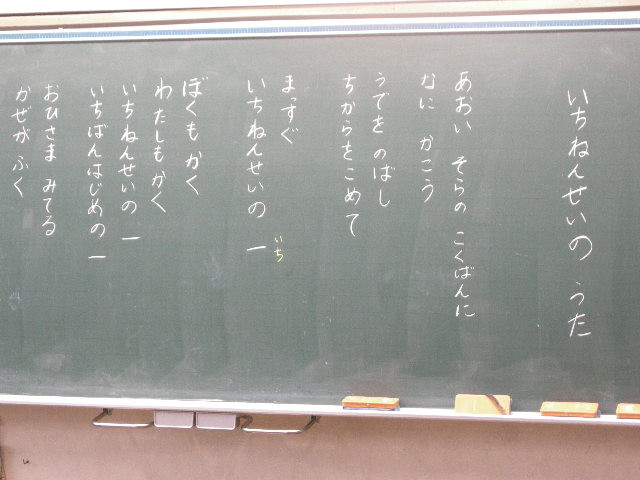 いちねんせいの うた
あおい そらの こくばんに
なに かこう
うでを のばし
ちからをこめて
まっすぐ
いちねんせいの 一
いち
ぼくもかく
わたしもかく
いちねんせいの 一
いちばんはじめの 一
おひさま みてる
かぜが ふく